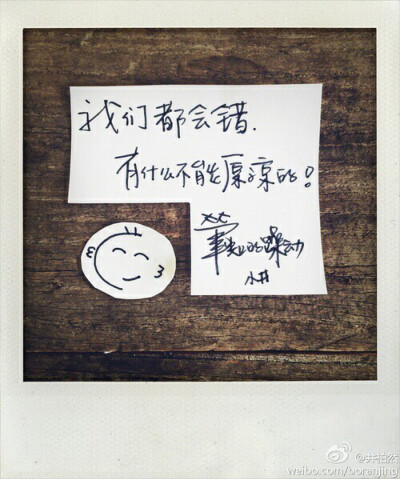 我们都会错.
有什么不能原谅的!
的躁动
小井
@井柏然
weibo.com/boranjing